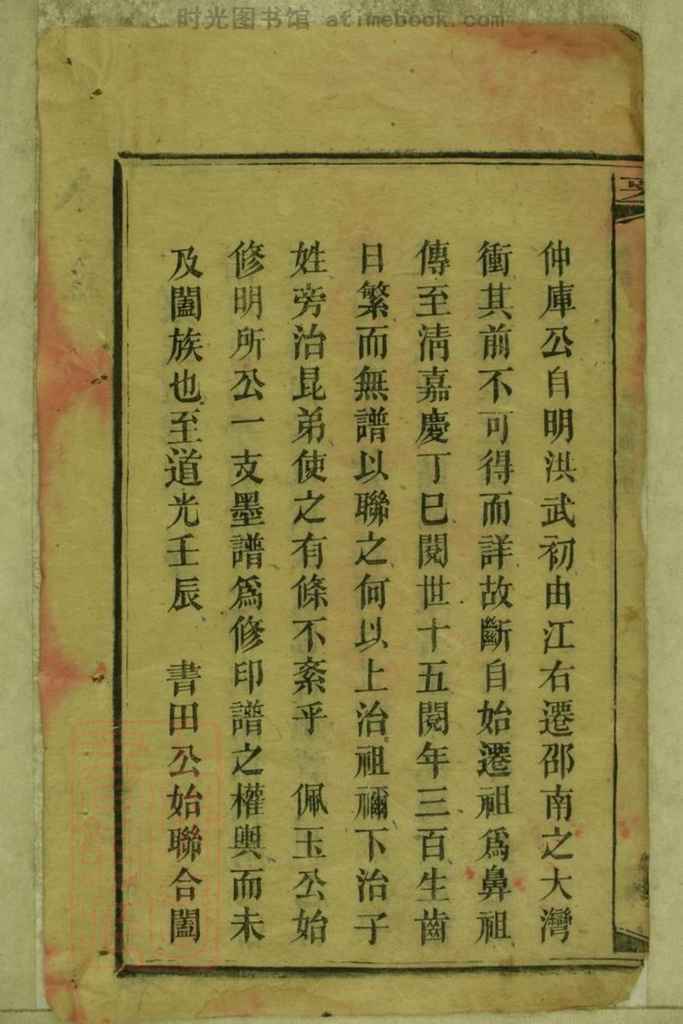 时光图书馆 atimebook.com
仲庫公自明洪武初由江右遷邵南之大灣
衝其前不可得而詳故斷自始遷祖爲鼻祖
傳至清嘉慶丁巳閱世十五閱年三百生齒
日繁而無譜以聯之何以上治祖禰下治子
姓旁治昆弟使之有條不紊乎 佩玉公始
修明所公一支墨譜爲修印譜之權輿而未
及闔族也至道光壬辰 書田公始聯合闔